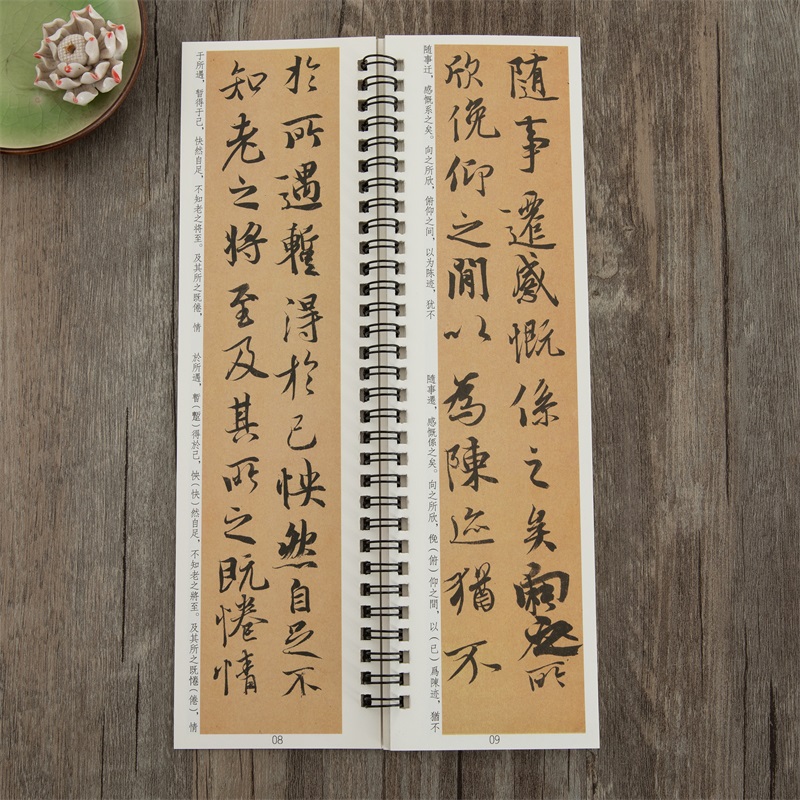 於所遇暫得於己怏然自足不
知老之將至及其所之既惓情
于所遇，暂得于己，快然自足，不知老之将至。及其所之既倦，情
於所遇，暫（蹔）得於己，怏（快）然自足，不知老之將至。及其所之既惓（倦），情
08
隨事遷感慨係之矣向之所
欣俛仰之閒以為陳迹猶不
随事迁，感慨系之矣。向之所欣，俯仰之间，以为陈迹，犹不
隨事遷，感慨係之矣。向之所欣，俛（俯）仰之閒，以（已）爲陳迹，猶不
09